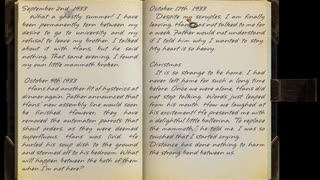 September 2nd 1933
What a ghastly summer! I have
been permanently torn between my
desire to go to university and my
refusal to leave my brother. I talked
about it with Hans, but he said
nothing. That same evening, I found
my own little mammoth broken.
October 4th 1933
Hans had another of his hysterics at
dinner again. Father announced that
Hans' new assembly line would soon
be finished. However, they have
removed the automaton parrots that
shout orders, as they were deemed
superfluous. Hans was livid. He
hurled his soup dish to the ground
and stormed off to his bedroom. What
will happen between the both of them
when I'm not here?
October 17th 1933
Despite my scruples, I am finally
leaving. Hans has not talked to me for
a week. Father would not understand
if I told him why I wanted to stay.
My heart is so heavy.
Christmas
It is so strange to be home. I had
never left home for such a long time
before. Once we were alone, Hans did
not stop talking. Words just leaped
from his mouth. How we laughed at
his excitement! He presented me with
a delightful little ballerina. "To replace
the mammoth," he told me. I was so
touched that I started crying.
Distance has done nothing to harm
the strong bond between us.